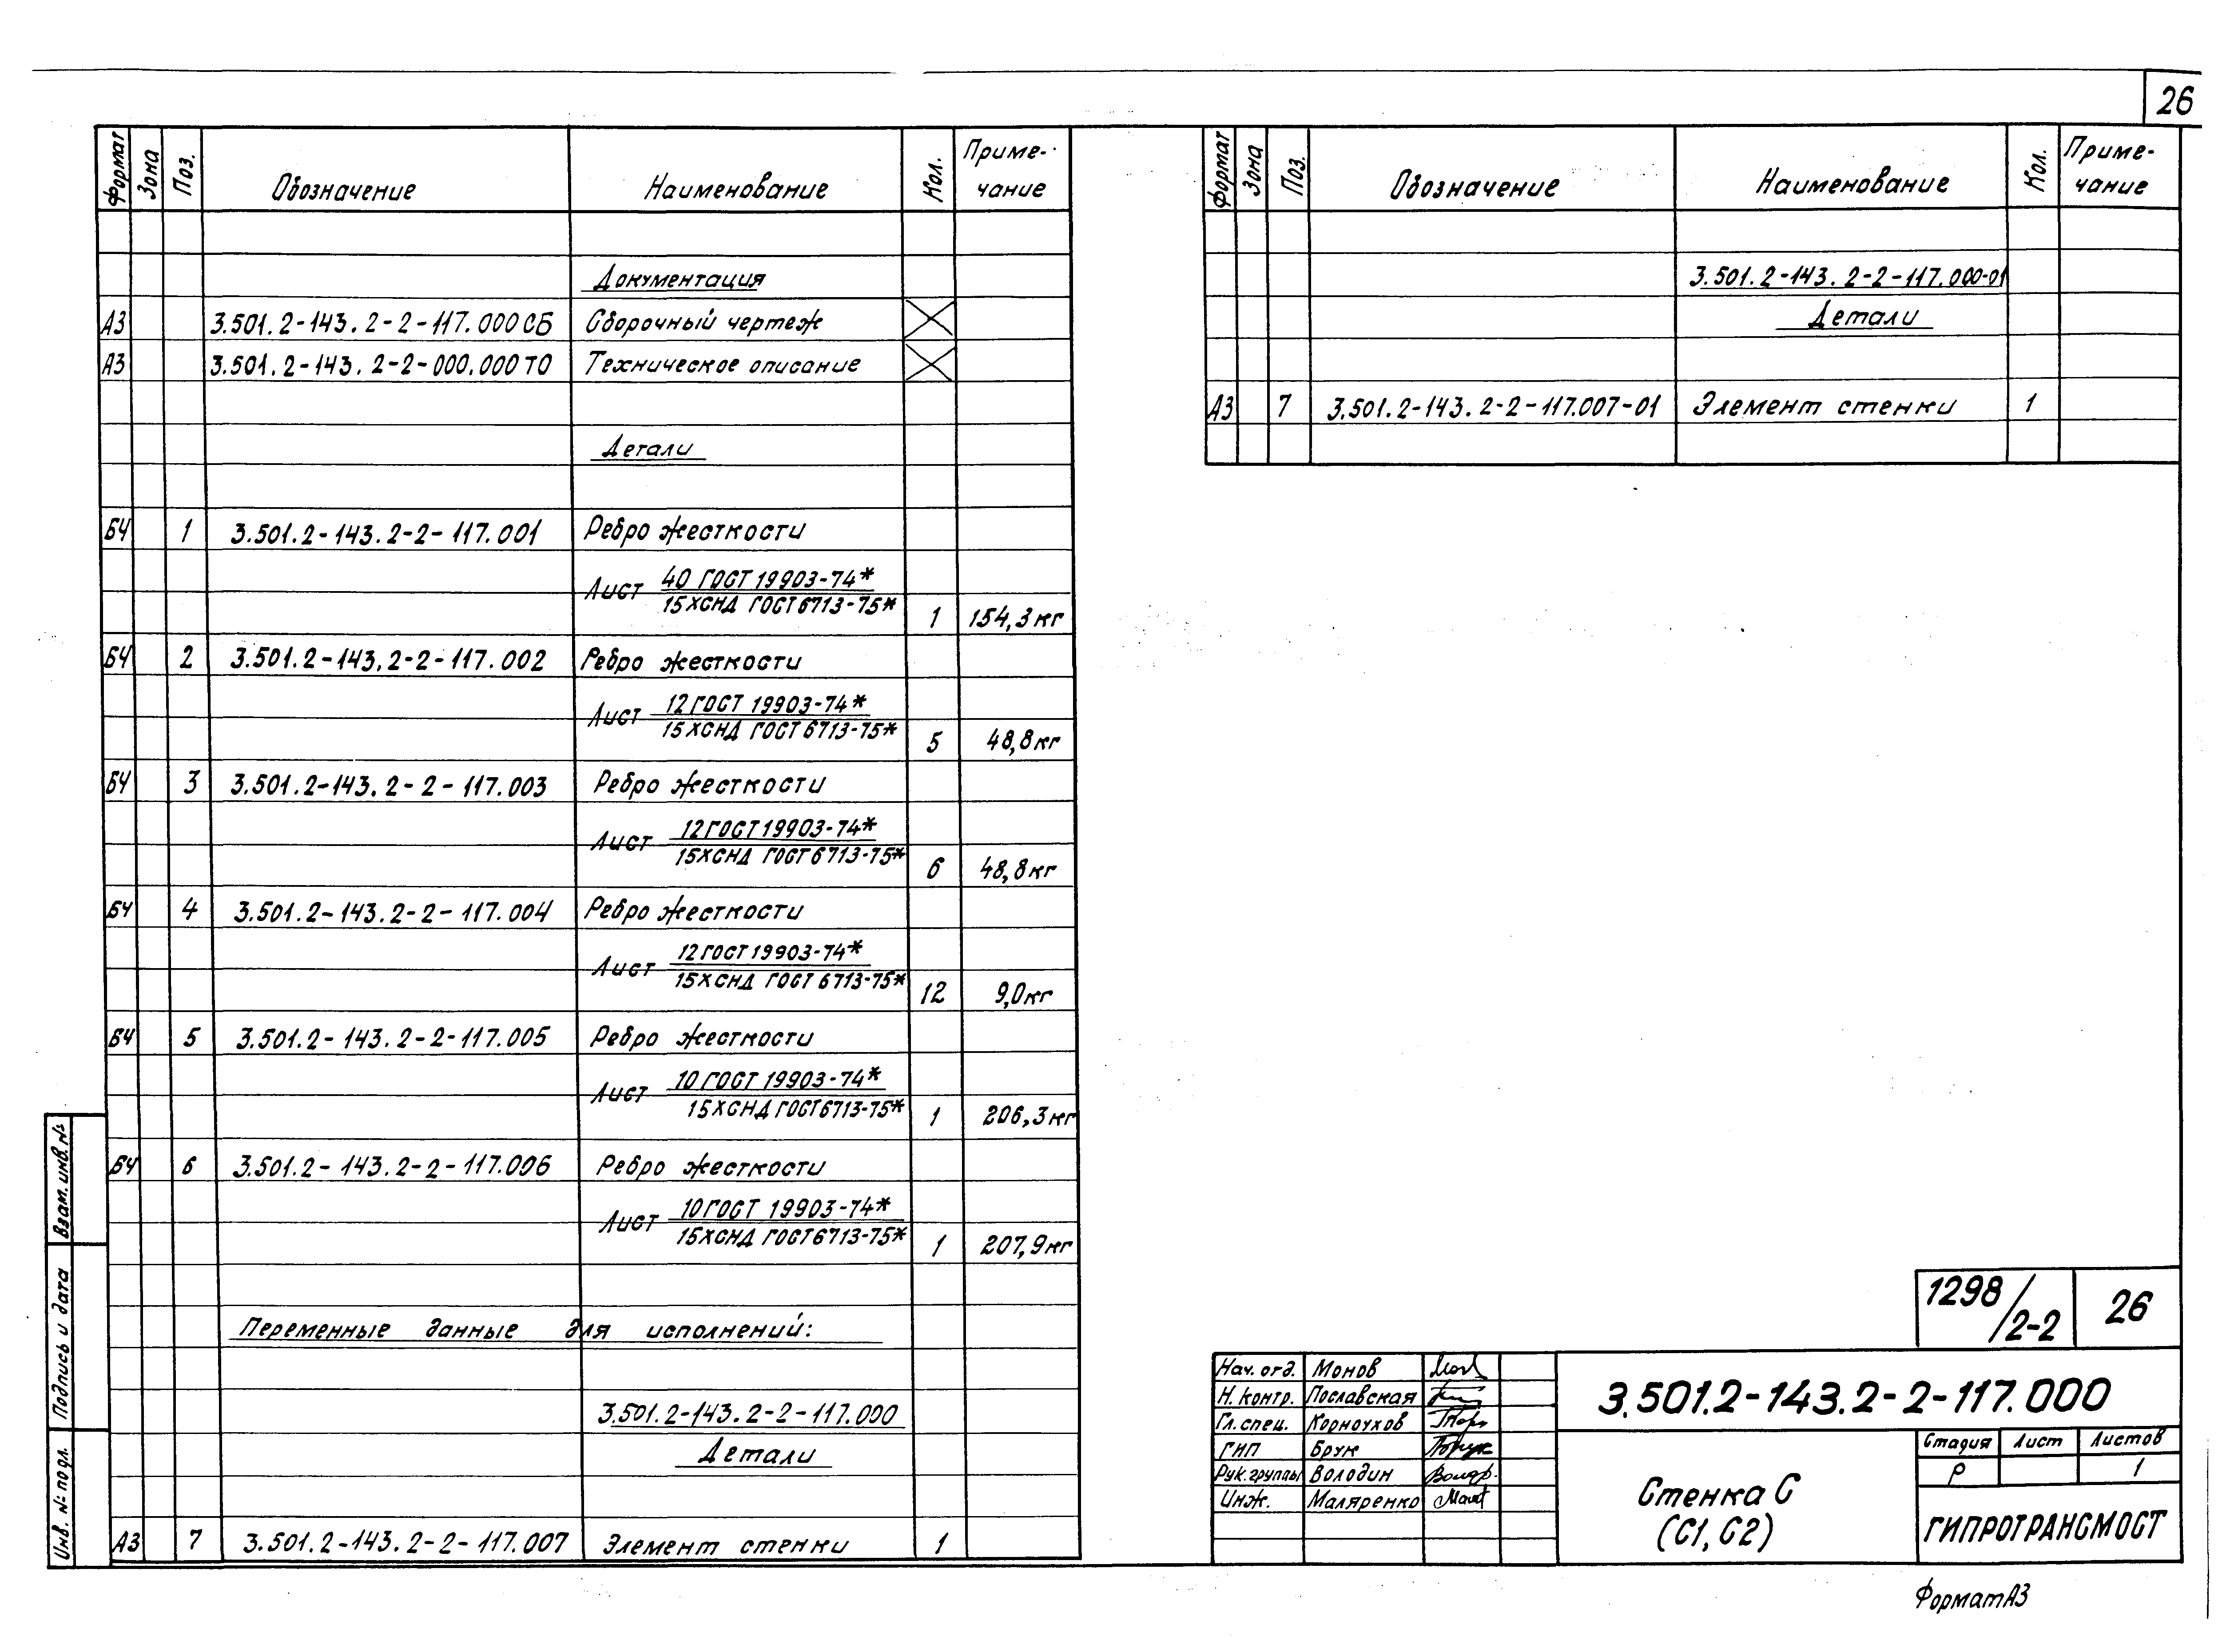 26
Формат Зона Поз. Обозначение Наименование Кол. Приме-
чание
Документация
А3 3.501.2-143.2-2-117.000СБ Сборочный чертеж
А3 3.501.2-143.2-2-000.000ТО Техническое описание
Детали
БЧ 1 3.501.2-143.2-2-117.001 Ребро жесткости
Лист 40 ГОСТ 19903-74*
15ХСНД ГОСТ 6713-75* 1 154,3кг
БЧ 2 3.501.2-143.2-2-117.002 Ребро жесткости
Лист 12 ГОСТ 19903-74*
15ХСНД ГОСТ 6713-75* 5 48,8кг
БЧ 3 3.501.2-143.2-2-117.003 Ребро жесткости
Лист 12 ГОСТ 19903-74*
15ХСНД ГОСТ 6713-75* 6 48,8кг
БЧ 4 3.501.2-143.2-2-117.004 Ребро жесткости
Лист 12 ГОСТ 19903-74*
15ХСНД ГОСТ 6713-75* 12 9,0кг
БЧ 5 3.501.2-143.2-2-117.005 Ребро жесткости
Лист 10 ГОСТ 19903-74*
15ХСНД ГОСТ 6713-75* 1 206,3кг
БЧ 6 3.501.2-143.2-2-117.006 Ребро жесткости
Лист 10 ГОСТ 19903-74*
15ХСНД ГОСТ 6713-75* 1 207,9кг
Переменные данные для исполнений:
3.501.2-143.2-2-117.000
Детали
А3 7 3.501.2-143.2-2-117.007 Элемент стенки 1
Взам. инв. №
Подпись и дата
Инв. № подл.
Формат Зона Поз. Обозначение Наименование Кол. Приме-
чание
3.501.2-143.2-2-117.000-01
Детали
А3 7 3.501.2-143.2-2-117.007-01 Элемент стенки 1
1298/2-2 26
Нач. отд. Монов
Н. контр. Пославская
Гл. спец. Корноухов
ГИП Брук
Рук. группы Володин
Инж. Маляренко
3.501.2-143.2-2-117.000
Стенка С
(С1, С2)
Стадия Лист Листов
Р 1
ГИПРОТРАНСМОСТ
Формат А3